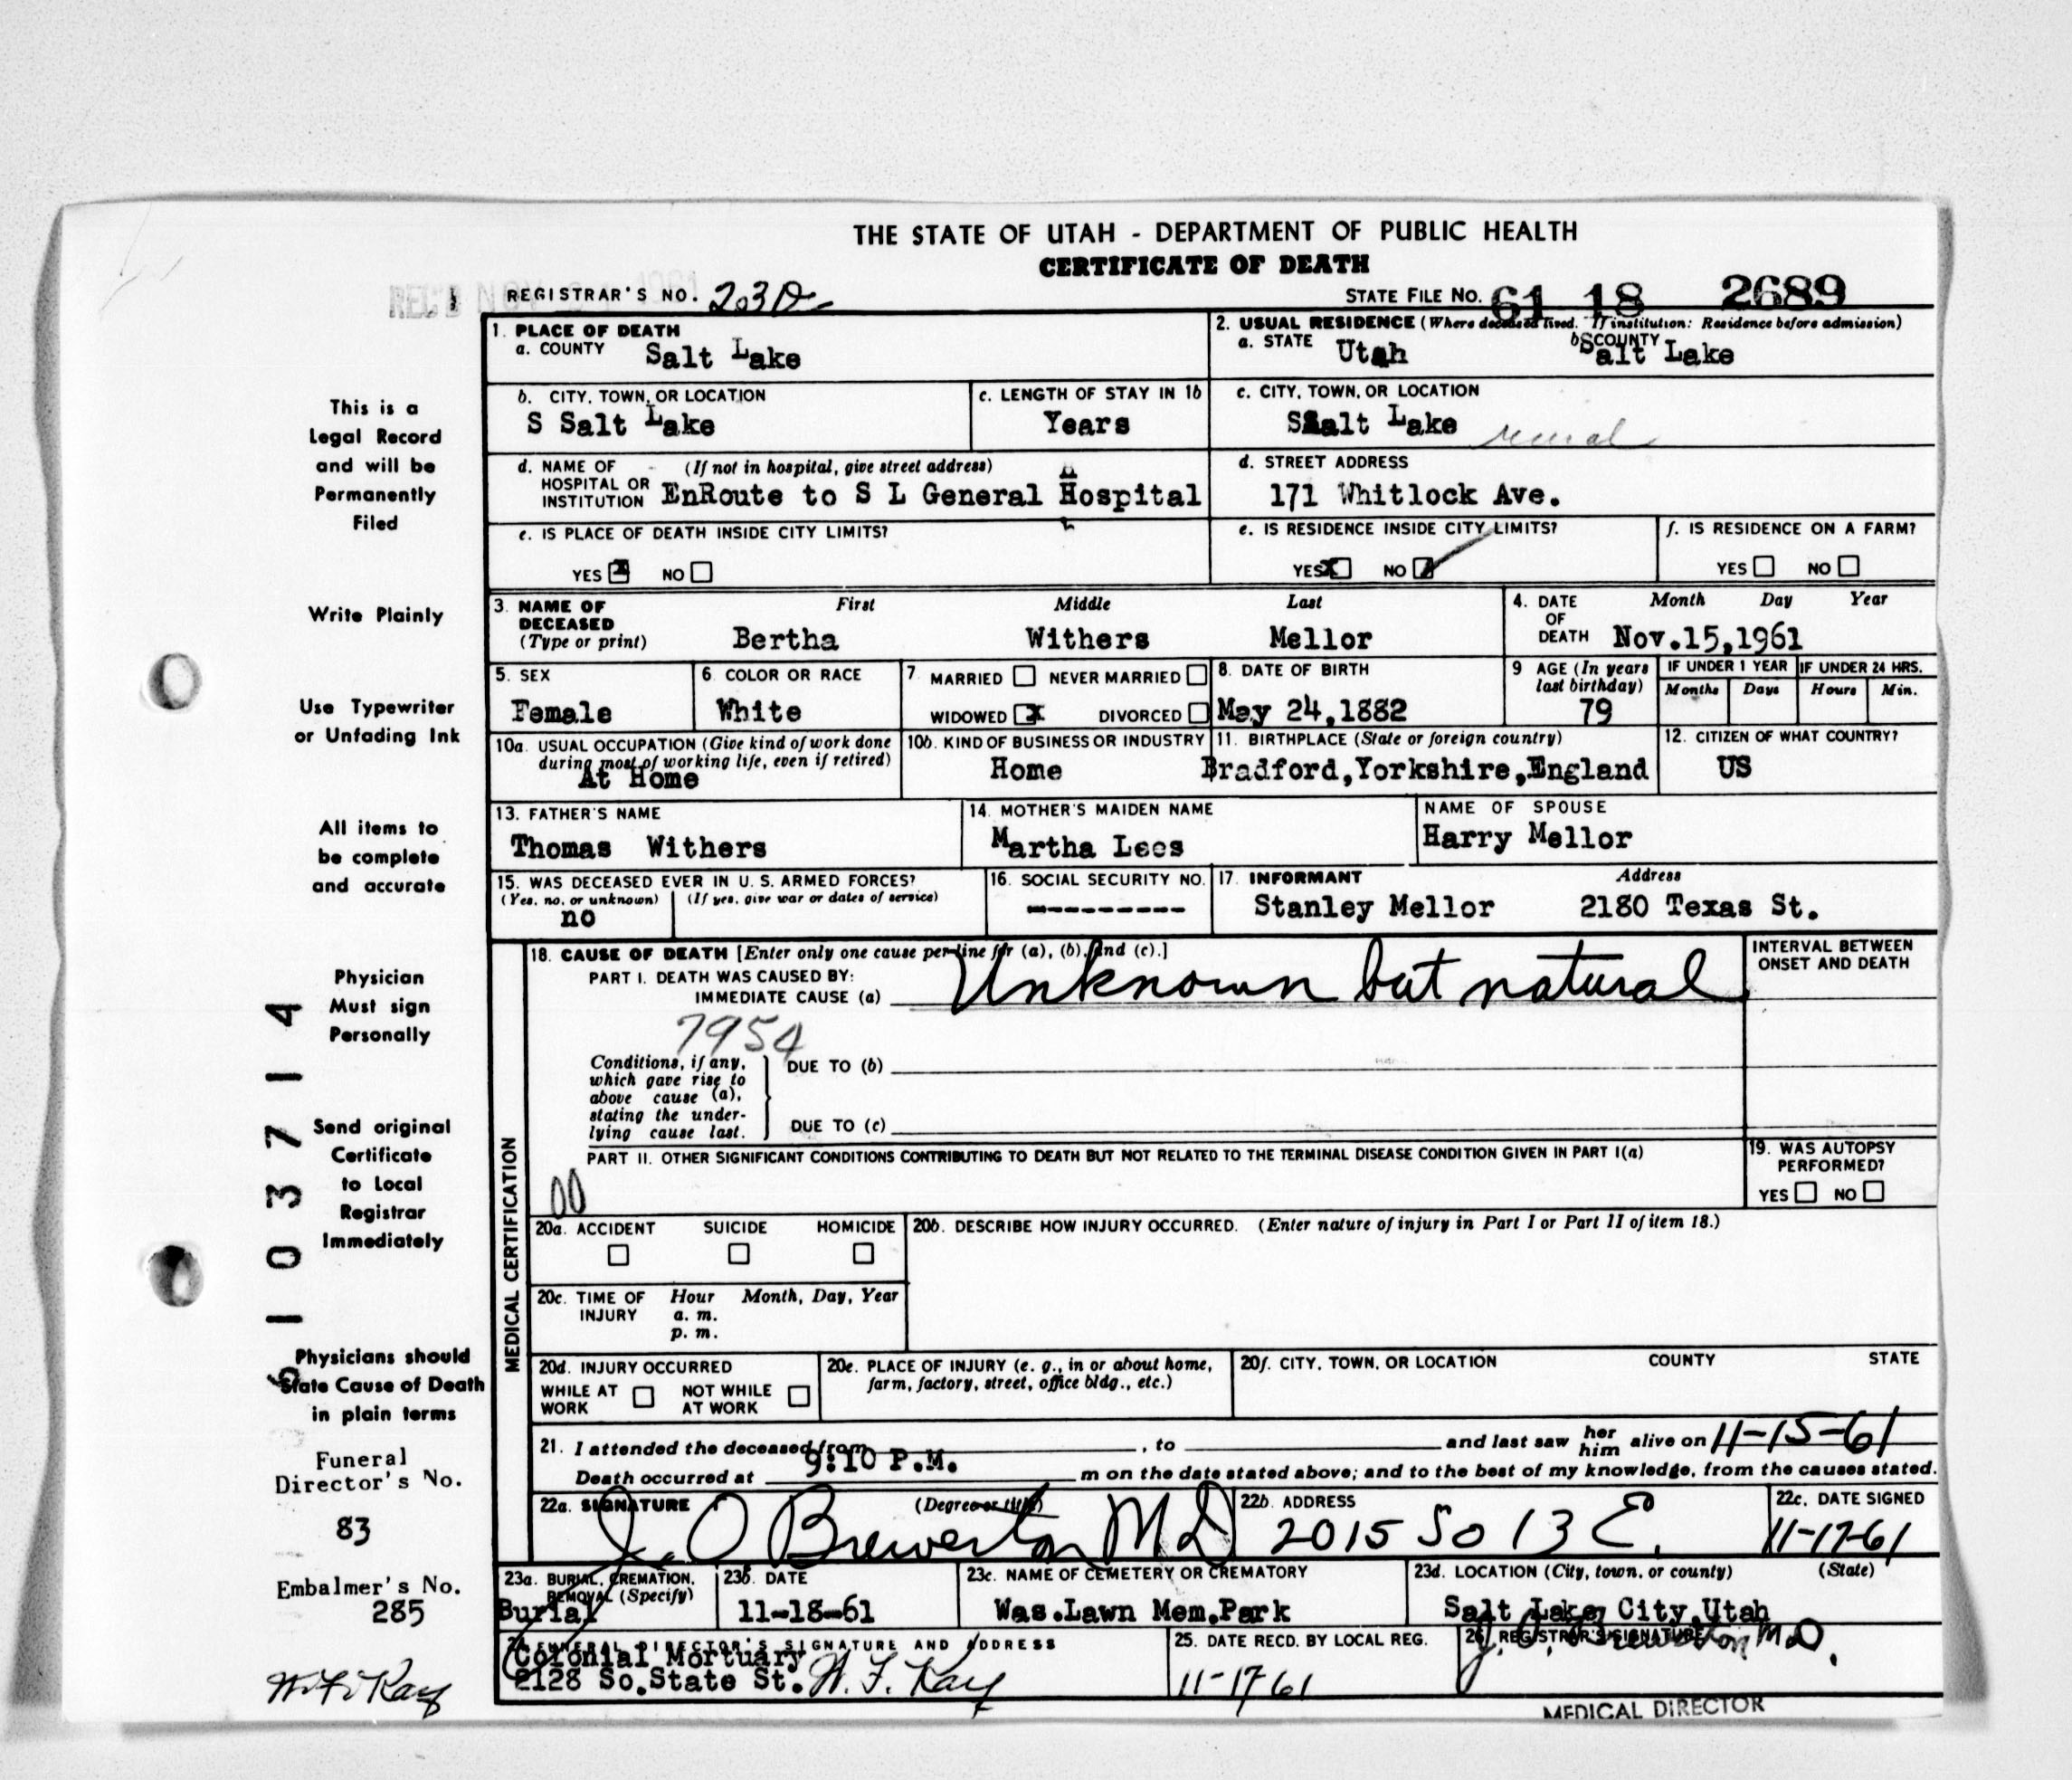 THE STATE OF UTAH - DEPARTMENT OF PUBLIC HEALTH
CERTIFICATE OF DEATH
REC'D NOV 1961
REGISTRAR'S NO.
STATE FILE NO. 61 18 2689
1. PLACE OF DEATH
a. COUNTY Salt Lake
2. USUAL RESIDENCE (Where deceased lived. If institution: Residence before admission)
a. STATE Utah b. COUNTY Salt Lake
b. CITY, TOWN, OR LOCATION
S Salt Lake
c. LENGTH OF STAY IN 1b
Years
c. CITY, TOWN, OR LOCATION
SSalt Lake rural
d. NAME OF HOSPITAL OR INSTITUTION (If not in hospital, give street address)
EnRoute to S L General Hospital
d. STREET ADDRESS
171 Whitlock Ave.
e. IS PLACE OF DEATH INSIDE CITY LIMITS?
YES x NO
e. IS RESIDENCE INSIDE CITY LIMITS?
YES x NO
f. IS RESIDENCE ON A FARM?
YES NO
3. NAME OF DECEASED (Type or print)
First Middle Last
Bertha Withers Mellor
4. DATE OF DEATH Month Day Year
Nov.15,1961
5. SEX
Female
6. COLOR OR RACE
White
7. MARRIED NEVER MARRIED
WIDOWED x DIVORCED
8. DATE OF BIRTH
May 24,1882
9 AGE (In years last birthday)
79
IF UNDER 1 YEAR IF UNDER 24 HRS.
Months Days Hours Min.
10a. USUAL OCCUPATION (Give kind of work done during most of working life, even if retired)
At Home
10b. KIND OF BUSINESS OR INDUSTRY
Home
11. BIRTHPLACE (State or foreign country)
Bradford,Yorkshire,England
12. CITIZEN OF WHAT COUNTRY?
US
13. FATHER'S NAME
Thomas Withers
14. MOTHER'S MAIDEN NAME
Martha Lees
NAME OF SPOUSE
Harry Mellor
15. WAS DECEASED EVER IN U. S. ARMED FORCES?
(Yes, no, or unknown) (If yes, give war or dates of service)
no
16. SOCIAL SECURITY NO.
----------
17. INFORMANT Address
Stanley Mellor 2180 Texas St.
MEDICAL CERTIFICATION
18. CAUSE OF DEATH [Enter only one cause per line for (a), (b), and (c).]
PART I. DEATH WAS CAUSED BY:
IMMEDIATE CAUSE (a) Unknown but natural
INTERVAL BETWEEN ONSET AND DEATH
7954
Conditions, if any, which gave rise to above cause (a), stating the underlying cause last.
DUE TO (b)
DUE TO (c)
PART II. OTHER SIGNIFICANT CONDITIONS CONTRIBUTING TO DEATH BUT NOT RELATED TO THE TERMINAL DISEASE CONDITION GIVEN IN PART I(a)
00
19. WAS AUTOPSY PERFORMED?
YES NO
20a. ACCIDENT SUICIDE HOMICIDE
20b. DESCRIBE HOW INJURY OCCURRED. (Enter nature of injury in Part I or Part II of item 18.)
20c. TIME OF INJURY Hour Month, Day, Year
a. m.
p. m.
20d. INJURY OCCURRED
WHILE AT WORK NOT WHILE AT WORK
20e. PLACE OF INJURY (e. g., in or about home, farm, factory, street, office bldg., etc.)
20f. CITY, TOWN, OR LOCATION COUNTY STATE
21. I attended the deceased from , to and last saw her him alive on 11-15-61
Death occurred at 9:10 P.M. m on the date stated above; and to the best of my knowledge, from the causes stated.
22a. SIGNATURE (Degree or title)
J. O Brewerton MD
22b. ADDRESS
2015 So 13 E.
22c. DATE SIGNED
11-17-61
23a. BURIAL, CREMATION, REMOVAL (Specify)
Burial
23b. DATE
11-18-61
23c. NAME OF CEMETERY OR CREMATORY
Was.Lawn Mem.Park
23d. LOCATION (City, town, or county) (State)
Salt Lake City,Utah
24 FUNERAL DIRECTOR'S SIGNATURE AND ADDRESS
Colonial Mortuary
2128 So.State St. W. F. Kay
25. DATE RECD. BY LOCAL REG.
11-17 61
26. REGISTRAR'S SIGNATURE
J. O. Brewerton MD.
MEDICAL DIRECTOR
This is a
Legal Record
and will be
Permanently
Filed
Write Plainly
Use Typewriter
or Unfading Ink
All items to
be complete
and accurate
Physician
Must sign
Personally
Send original
Certificate
to Local
Registrar
Immediately
Physicians should
State Cause of Death
in plain terms
Funeral
Director's No.
83
Embalmer's No.
285
W. F. Kay
6103714